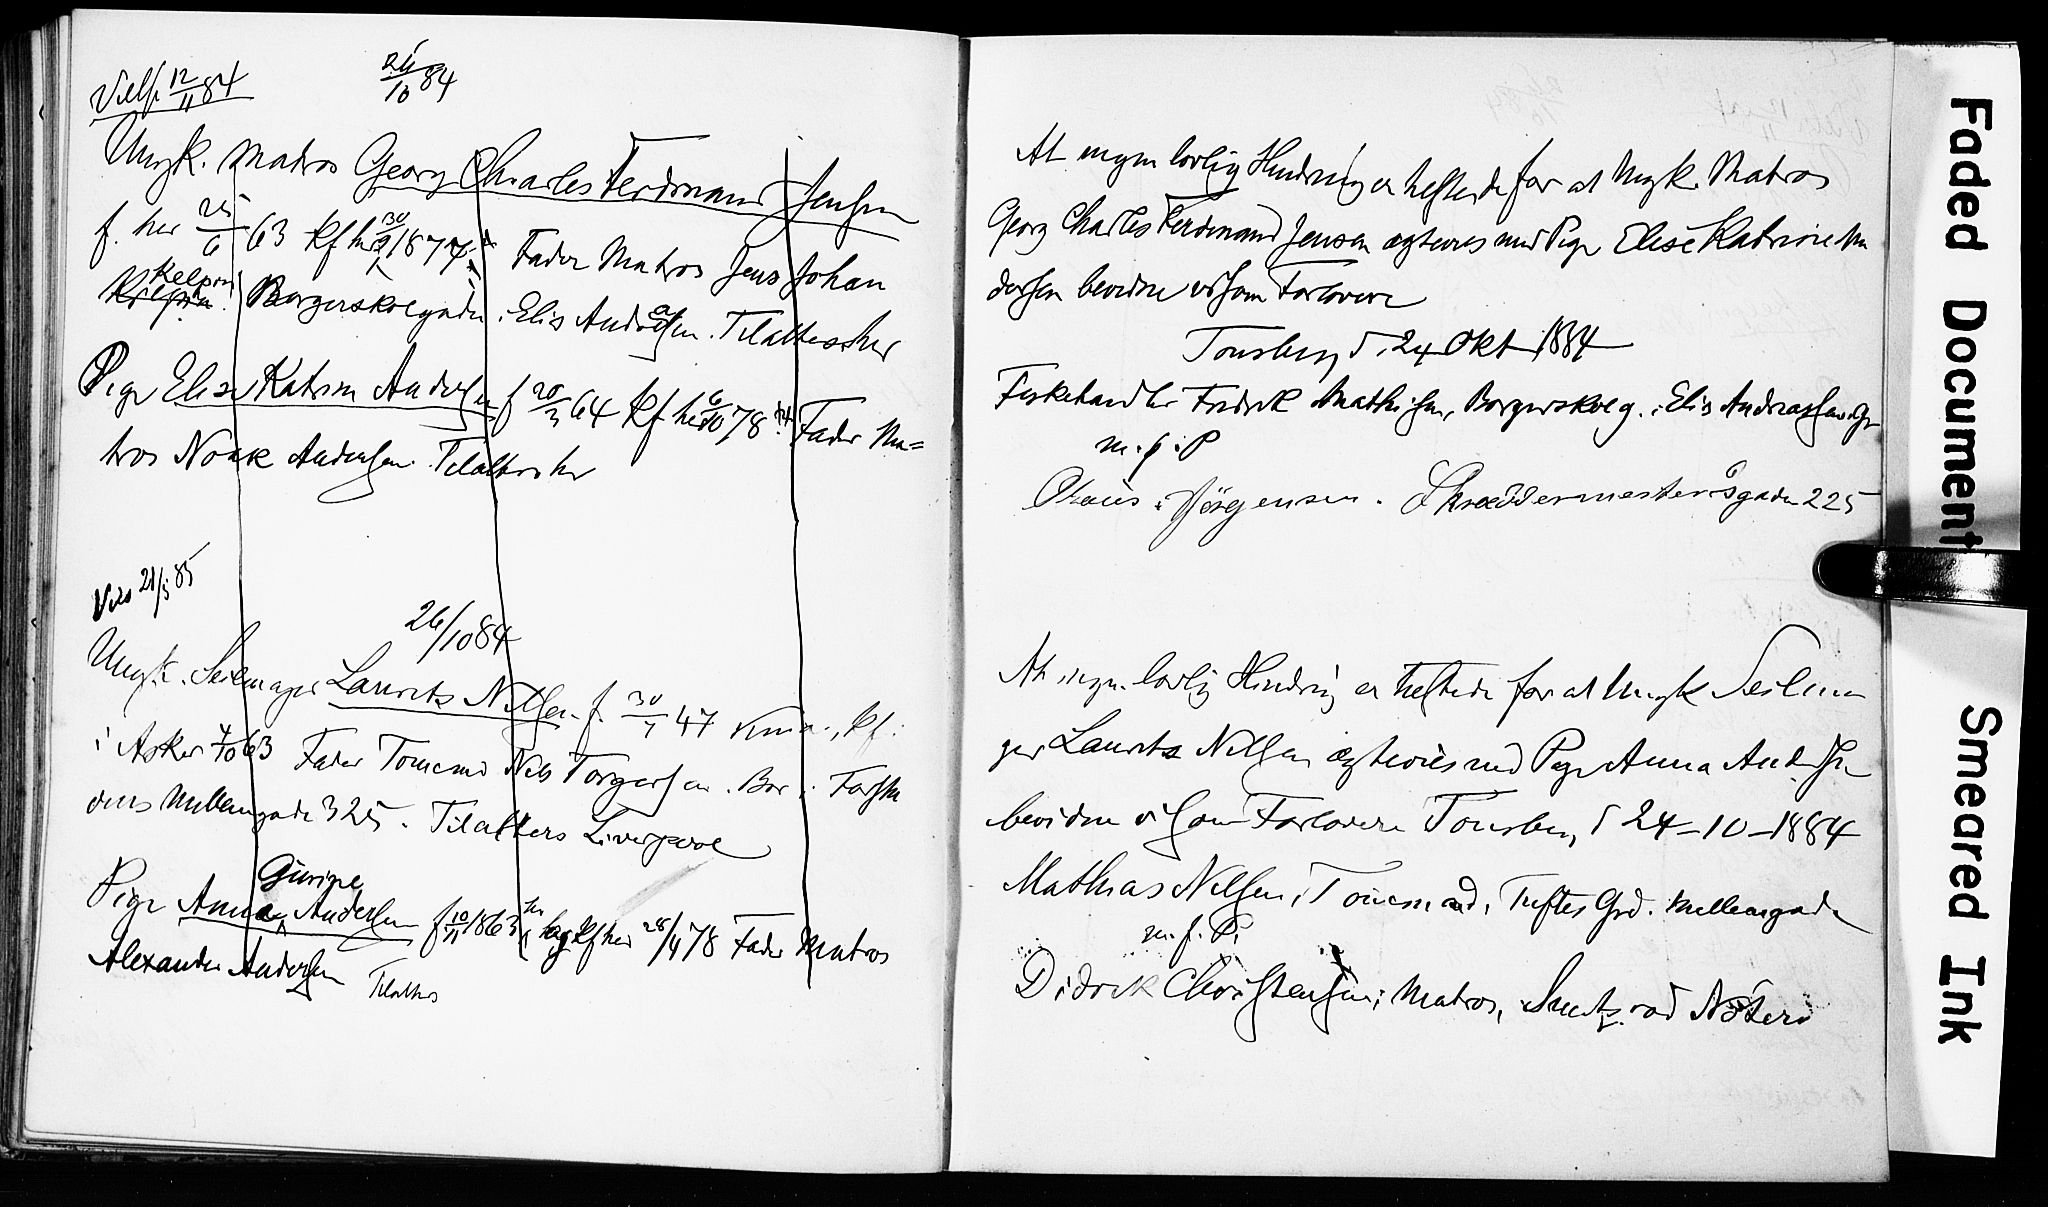 Vielse 12/11 84
26/10 84
Ungk. Matros Georg Charles Ferdinand Jensen
f. her 25/6 63 Kf her 30/9 1877 Fader Matros Jens Johan
Borgerskolegaden. Tilalters her
Pige Elise Katrin Andersen f 20/3 64 Kf her 6/10 78 Fader Ma=
tros Andersen. Tilalters her
Viet 21/5 85
26/10 84
Ungk. Seilmager Laurits Nilsen f. 30/7 47 , Kf.
i Asker 4/10 63 Fader Tomemd Nils Torgersen. Bor i
Møllegade 325. Tilalters Liverpool
Gurine
Pige Anna Andersen f 10/11 1863 her og Kf her 28/4 78 Fader Matros
Alexander Andersen Tilalters
At ingen lovlig Hindring er tilstede for at Ungk. Matros
Georg Charles Ferdinand Jensen ægtevies med Pige Elise Katrine An
dersen bevidne vi som Forlovere
Tønsberg d. 24 Okt 1884
Fiskehandler Fredrik Mathisen, Borgerskoleg. i
m. f. P
Jörgensen. Skræddermestersgaden 225
At ingen lovlig Hindring er tilstede for at Ungk Seilma
ger Laurits Nilsen ægtevies med Pige Anna Andersen
bevidne vi som Forlovere Tønsberg d 24-10-1884
Mathias Nilsen, Tomemand, Tuftes Grd. Møllegade
m. f. P.
Didrik Christensen, Matros, Nöterö
Faded Document
Smeared Ink